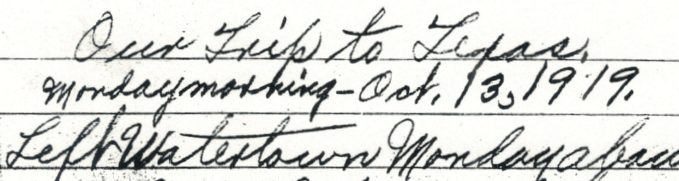 Our Trip to Texas.
Monday morning - Oct. 13, 1919.
Left Watertown Monday abou